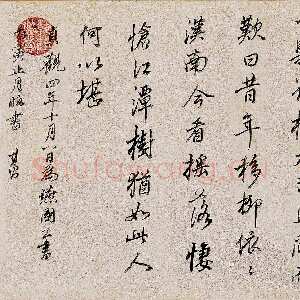 歎曰昔年移柳依〻
漢南今看搖落悽
愴江潭樹猶如此人
何以堪
貞觀四年十月八日為燕國公書
正月臨書